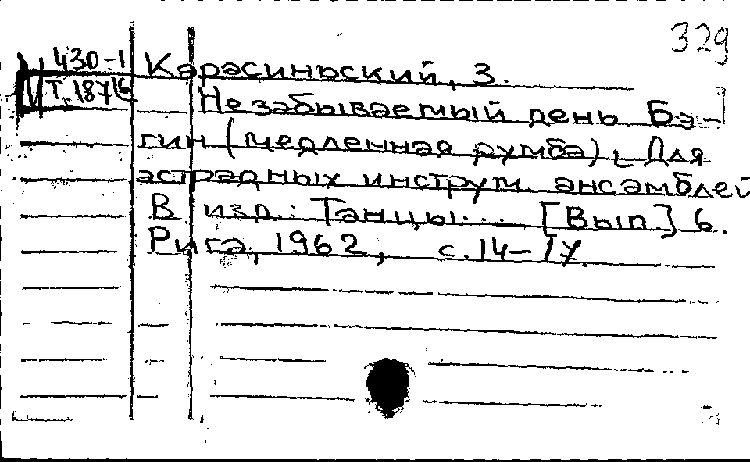 329
М 430-1
Т.187/6
Карасиньский, З.
Незабываемый день Бэ-
гин (медленная румба), Для
эстрадных инструм. ансамблей
В изд.: Танцы... [Вып.] 6.
Рига, 1962, с. 14-